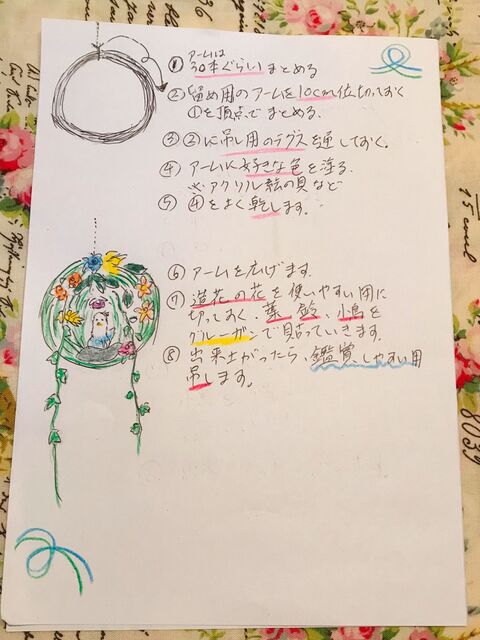 ① アームは
30本ぐらいまとめる
② 留め用のアームを10cm位切っておく
①を頂点でまとめる。
③ ②に吊し用のテグスを通しておく。
④ アームに好きな色を塗る。
※アクリル絵の具など
⑤ ④をよく乾します。
⑥ アームを広げます。
⑦ 造花の花を使いやすい用に
切っておく、葉、鈴、小鳥を
グルーガンで貼っていきます。
⑧ 出来上がったら、鑑賞しやすい用
吊します。
15
8039